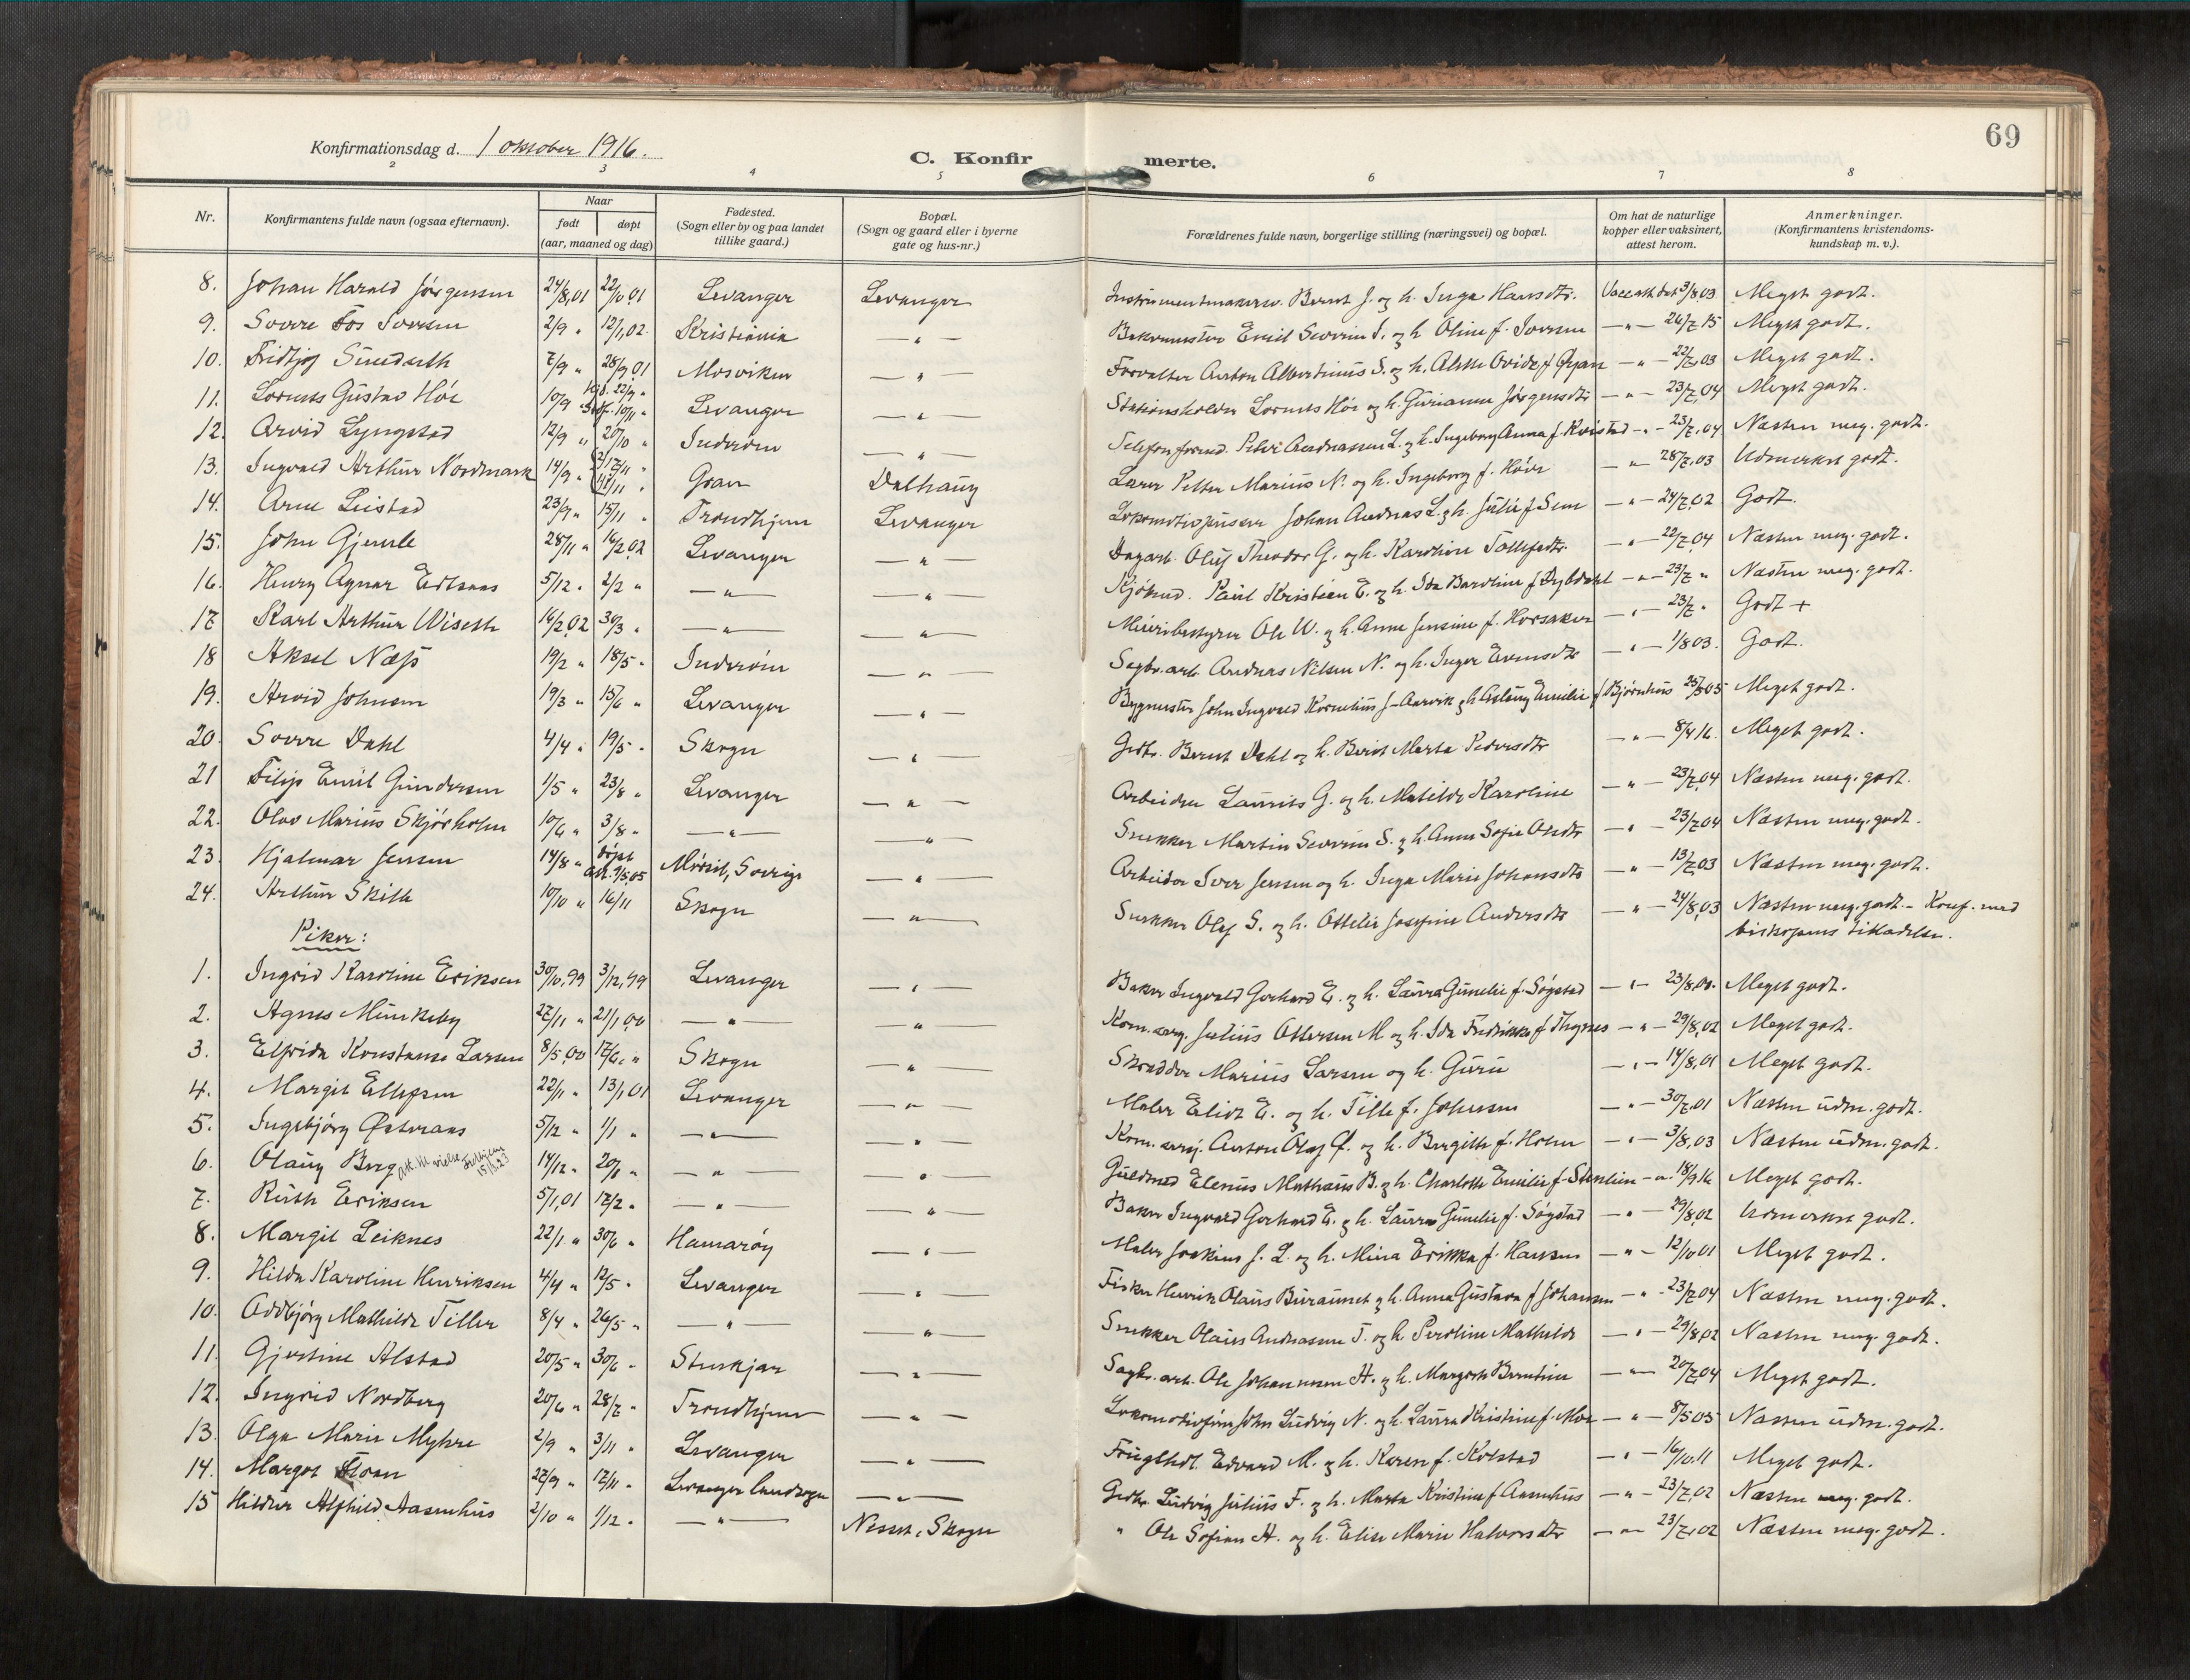 69
Konfirmationsdag d. 1 oktober 1916.
C. Konfirmerte.
2 3 4 5 6 7 8
Nr.
Konfirmantens fulde navn (ogsaa efternavn).
Naar
født døpt
(aar, maaned og dag)
Fødested.
(Sogn eller by og paa landet
tillike gaard.)
Bopæl.
(Sogn og gaard eller i byerne
gate og hus-nr.)
Forældrenes fulde navn, borgerlige stilling (næringsvei) og bopæl.
Om hat de naturlige
kopper eller vaksinert,
attest herom.
Anmerkninger.
(Konfirmantens kristendoms-
kundskap m. v.).
8. Johan Harald Jørgensen 24/8,01 22/10 01 Levanger Levanger Instrumentmakersv. Bernt J. og h. Inga Hansdtr. Vacc att dat 3/8 03 Meget godt.
9. Sverre Iversen 2/9 " 12/1,02. Kristiania — " — Bakermester Emil Severin I. og h. Oline f. Iversen — " — 26/7 15 Meget godt.
10. Fridtjof Sundseth 7/9 " 28/9 01 Mosviken — " — Forvalter Anton Albertinius S. og h. — " — 22/7,03 Meget godt.
11. Lorents Gustav Høe 10/9 " Levanger — " — Stationsholder Lorents Høe og h. Jørgensdtr — " — 23/7,04 Meget godt.
12. Arvid Lyngstad 12/9 " 20/10 " Inderøen — " — Telefonformd. Peter Andreassen L. og h. Ingeborg Anna f. Kvistad — " — 23/7,04 Næsten meg. godt.
13. Ingvald Arthur Nordmark 14/9 " Gran Dalhaug Lærer Petter Marius N. og h. Ingeborg f. — " 28/7,03 Udmerket godt.
14. Arne Leistad 23/9 " 15/11 " Trondhjem Levanger Lokomotivpusser Johan Andreas L. og h. Julie f Sem — " — 24/7,02 Godt.
15. John Gjemle 28/11 " 16/2 02 Levanger — " — Dagarb. Oluf Theodor G. og h. Karoline Tollefsdtr. — " — 22/7,04 Næsten meg. godt.
16. Henry Agnar 5/12 " 2/2 " — " — — " — Kjøbmd. Paul Kristian E. og h. Ida Bardine f. Dybdahl — " — 23/7 " Næsten meg. godt.
17 Karl Arthur Wiseth 16/2,02 30/3 " — " — — " — Meieribestyrer Ole W. og h. Anne Jensine f. Horsaker — " — 23/7 " Godt +
18 Aksel Næss 19/2 " 18/5 " Inderøen — " — Sagbr. arb. Andreas Nilsen N. og h. Inger Evensdtr — " — 1/8 03. Godt.
19. Arvid Johnsen 19/3 " 15/6 " Levanger — " — Bygmester John Ingvald Kornelius J- og h Aslaug Emilie f Bjørnhus 25/5 05 Meget godt.
20. Sverre Dahl 4/4 " 19/5 " Skogn — " — Grdbr. Bernt Dahl og h. Berit Marta Pedersdtr — " — 8/4 16. Meget godt.
21 Filip Emil Gundersen 1/5 " 23/8 " Levanger — " — Arbeider Laurits G. og h. Matilde Karoline — " — 23/7,04 Næsten meg. godt.
22. Olav Marius Skjørholm 10/6 " 3/8 " — " — — " — Snekker Martin Severin S. og h. Anne Sofie — " — 23/7 04 Næsten meg. godt.
23. Hjalmar Jensen 14/8 " døpt att. 9/5,05 Mörsil, Sverige — " — Arbeider Iver Jensen og h. Inga Marie Johansdtr — " — 13/7,03 Næsten meg. godt.
24. Arthur Skille 10/10 " 16/11 Skogn — " — Snekker Olaf S. og h. Ottelie Josefine Andersdtr — " — 24/8,03 Næsten meg. godt. - Konf. med
biskopens tilladelse.
Piker:
1. Ingrid Karoline Eriksen 30/10,99 3/12,99 Levanger — " — Baker Ingvald Gerhard E. og h. Laura Gunelie f. Søgstad — " — 23/8,00. Meget godt.
2. Agnes Munkeby 27/11 " 21/1,00 — " — " Kom. serg. Julius Ottersen M og h. Ida Fredrikke f. — " — 29/8,02 Meget godt.
3. Elfrida Konstanse Larsen 8/5,00 17/6, " Skogn — " — Skrædder Marius Larsen og h. Guru — " — 14/8,01 Meget godt.
4. Margit Ellefsen 22/11 " 13/1,01 Levanger — " — Maler Eliot E. og h. Tille f. Johnsen — " — 30/7,01 Næsten udm. godt.
5. Ingebjørg Østeraas 5/12 " 1/1 " — " — — " — Kom. serg. Anton Olaf Ø. og h. Bergithe f. Holm — " — 3/8,03 Næsten udm. godt.
6. Olaug Berg att. til vielse 14/12 " 20/1 " — " — — " — Guldsmed Elenus Mathæus B. og h. Charlotte Emilie f. — " — 18/9 16 Meget godt.
7. Ruth Eriksen 5/1,01 17/2 " — " — — " — Baker Ingvald Gerhard E. og h. Laura Gunelie f. Søgstad — " — 29/8,02 Udmerket godt.
8. Margit Leiknes 22/1 " 30/6 " Hamarøy — " — Maler Joakim J. L. og h. Mina Erikka f. Hansen — " — 12/10 01 Meget godt.
9. Hilda Karoline Henriksen 4/4 " 12/5 " Levanger — " — Fisker Henrik Olaus Buraunet og h. Anna Gustava f Johansen — " — 23/7 04 Næsten meg. godt.
10. Oddbjørg Mathilde Tiller 8/4 " 26/5 " — " — — " — Snekker Olaus Andreasen T. og h. Peroline Mathilde — " — 29/8,02 Næsten meg. godt.
11. Gjertine Alstad 20/5 " 30/6 " Stenkjær — " — Sagbr. arb. Ole Johan A. og h. Margrete Berntine — " — 20/7,04 Meget godt.
12. Ingrid Nordberg 20/6 " 28/7 " Trondhjem — " — Lokomotivfører John Ludvig N. og h. Laura Kristine f. Moe — " — 8/5 05 Næsten udm. godt.
13. Olga Marie Myhre 2/9 " 3/11 " Levanger — " — Edvard M. og h. Karen f. Kolstad — " — 16/10.11 Meget godt.
14. Margot 27/9 " 17/11 " Levanger landsogn — " — Grdbr. Ludvig Julius F. og h. Marta Kristine f Aasenhus — " — 23/7,02 Næsten meg. godt.
15 Hildur Alfhild Aasenhus 2/10 " 1/12 " — " — Nesset, Skogn " Ole Sofian A. og h. Elise Marie Halvorsdtr — " — 23/7,02 Næsten meg. godt.